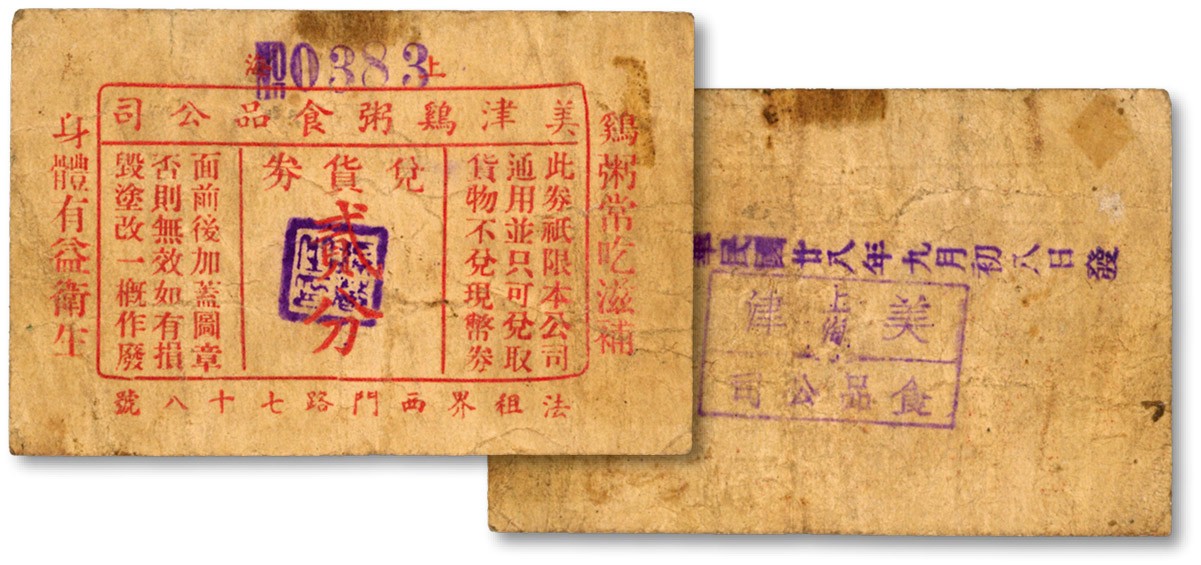 上海
0383
美津鷄粥食品公司
鷄粥常吃滋補
此劵祇限本公司
通用並只可兌取
貨物不兌現幣劵
兌貨劵
貳分
面前後加蓋圖章
否則無效如有損
毀塗改一概作廢
身體有益衛生
法租界西門路七十八號
華民國廿八年九月初八日發
上海
美津
食品公司